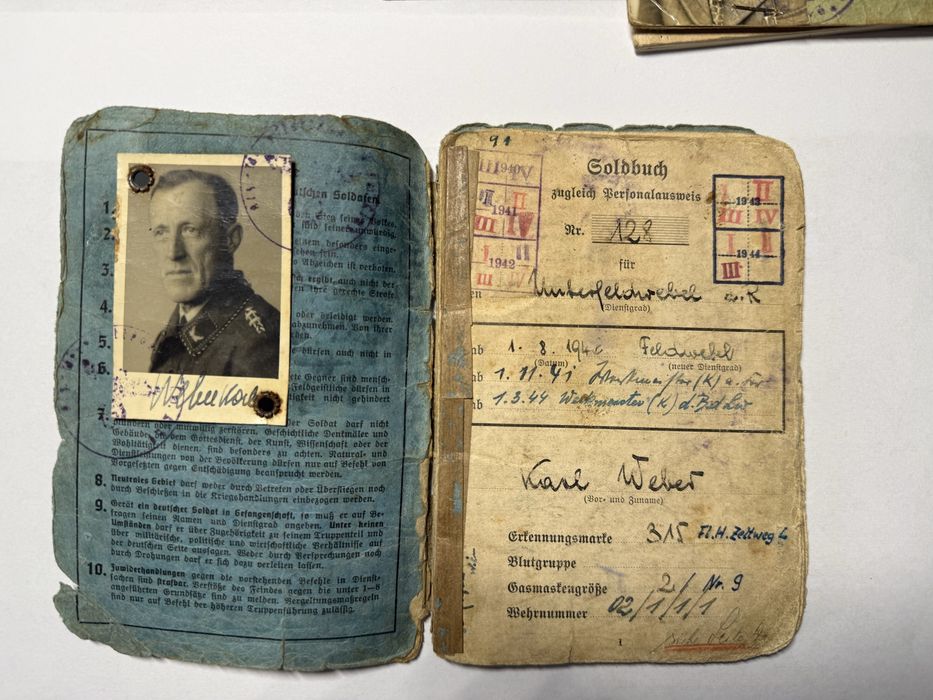 utschen Soldaten
1.
den Sieg seines Volkes.
sind seiner unwürdig.
2.
einem besonders einge-
Abzeichen ist verboten.
3.
ergibt auch nicht der
ihre gerechte Strafe
4.
oder beleidigt werden.
abzunehmen. Von ihrer
5.
dürfen auch nicht in
6.
Gegner sind mensch-
Feldgeistliche dürfen in
nicht gehindert
7.
der Soldat darf nicht
plündern oder mutwillig zerstören. Geschichtliche Denkmäler und
Gebäude, die dem Gottesdienst, der Kunst, Wissenschaft oder der
Wohltätigkeit dienen, sind besonders zu achten. Natural- und
Dienstleistungen von der Bevölkerung dürfen nur auf Befehl von
Vorgesetzten gegen Entschädigung beansprucht werden.
8. Neutrales Gebiet darf weder durch Betreten oder Überfliegen noch
durch Beschießen in die Kriegshandlungen einbezogen werden.
9. Gerät ein deutscher Soldat in Gefangenschaft, so muß er auf Be-
fragen seinen Namen und Dienstgrad angeben. Unter keinen
Umständen darf er über Zugehörigkeit zu seinem Truppenteil und
über militärische, politische und wirtschaftliche Verhältnisse auf
der deutschen Seite aussagen. Weder durch Versprechungen noch
durch Drohungen darf er sich dazu verleiten lassen.
10. Zuwiderhandlungen gegen die vorstehenden Befehle in Dienst-
sachen sind strafbar. Verstöße des Feindes gegen die unter 1–8
angeführten Grundsätze sind zu melden. Vergeltungsmaßregeln
sind nur auf Befehl der höheren Truppenführung zulässig.
91
III 1940 IV
II
1941
III IV
I II
1942
III IV
Soldbuch
zugleich Personalausweis
Nr. 128
für
I II
1943
III IV
I II
1944
III
Unterfeldwebel
(Dienstgrad)
ab 1. 8. 194 Feldwebel
(Datum) (neuer Dienstgrad)
ab 1. 11. 41 Werkmeister (K)
ab 1. 3. 44 Werkmeister (K)
Karl Weber
(Vor- und Zuname)
Erkennungsmarke 315 Fl.H.Zeltweg
Blutgruppe
Gasmaskengröße 2/ Nr. 9
Wehrnummer 02/1/1/1
1
siehe Seite